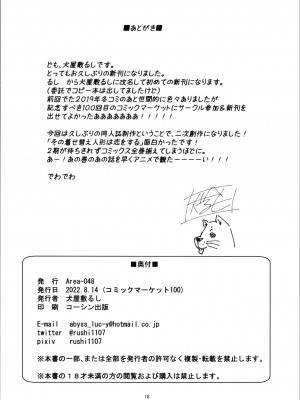 ■あとがき■
とも、犬屋敷るしです。
とってもお久しぶりの新刊になりました。
るし　から犬屋敷るしに改名して初めての新刊になります。
（委託でコピー本は出してましたけど）
前回でた2019年冬コミのあと世間的に色々ありましたが
記念すべき100回目のコミックマーケットにサークル参加&新刊を
出せてよかったあああああああ！！！！！
今回は久しぶりの同人誌制作ということで、二次創作になりました！
「その着せ替え人形は恋をする」面白かったです！
２期が待ちきれずコミックス全巻揃えてしまうほどに。
あー！あの巻のあの話を早くアニメで観たーーーい！！！
でわでわ
■奥付■
発　行　Area-048
発行日　2022.8.14（コミックマーケット100）
発行者　犬屋敷るし
印　刷　コーシン出版
E-mail　abyss_luc-y@hotmail.co.jp
twitter　@rushi1107
pixiv　rushi1107
※本書の一部、または全部を発行者の許可なく複製・転載を禁止します。
※本書の１８才未満の方の閲覧および購入は禁止します。
18